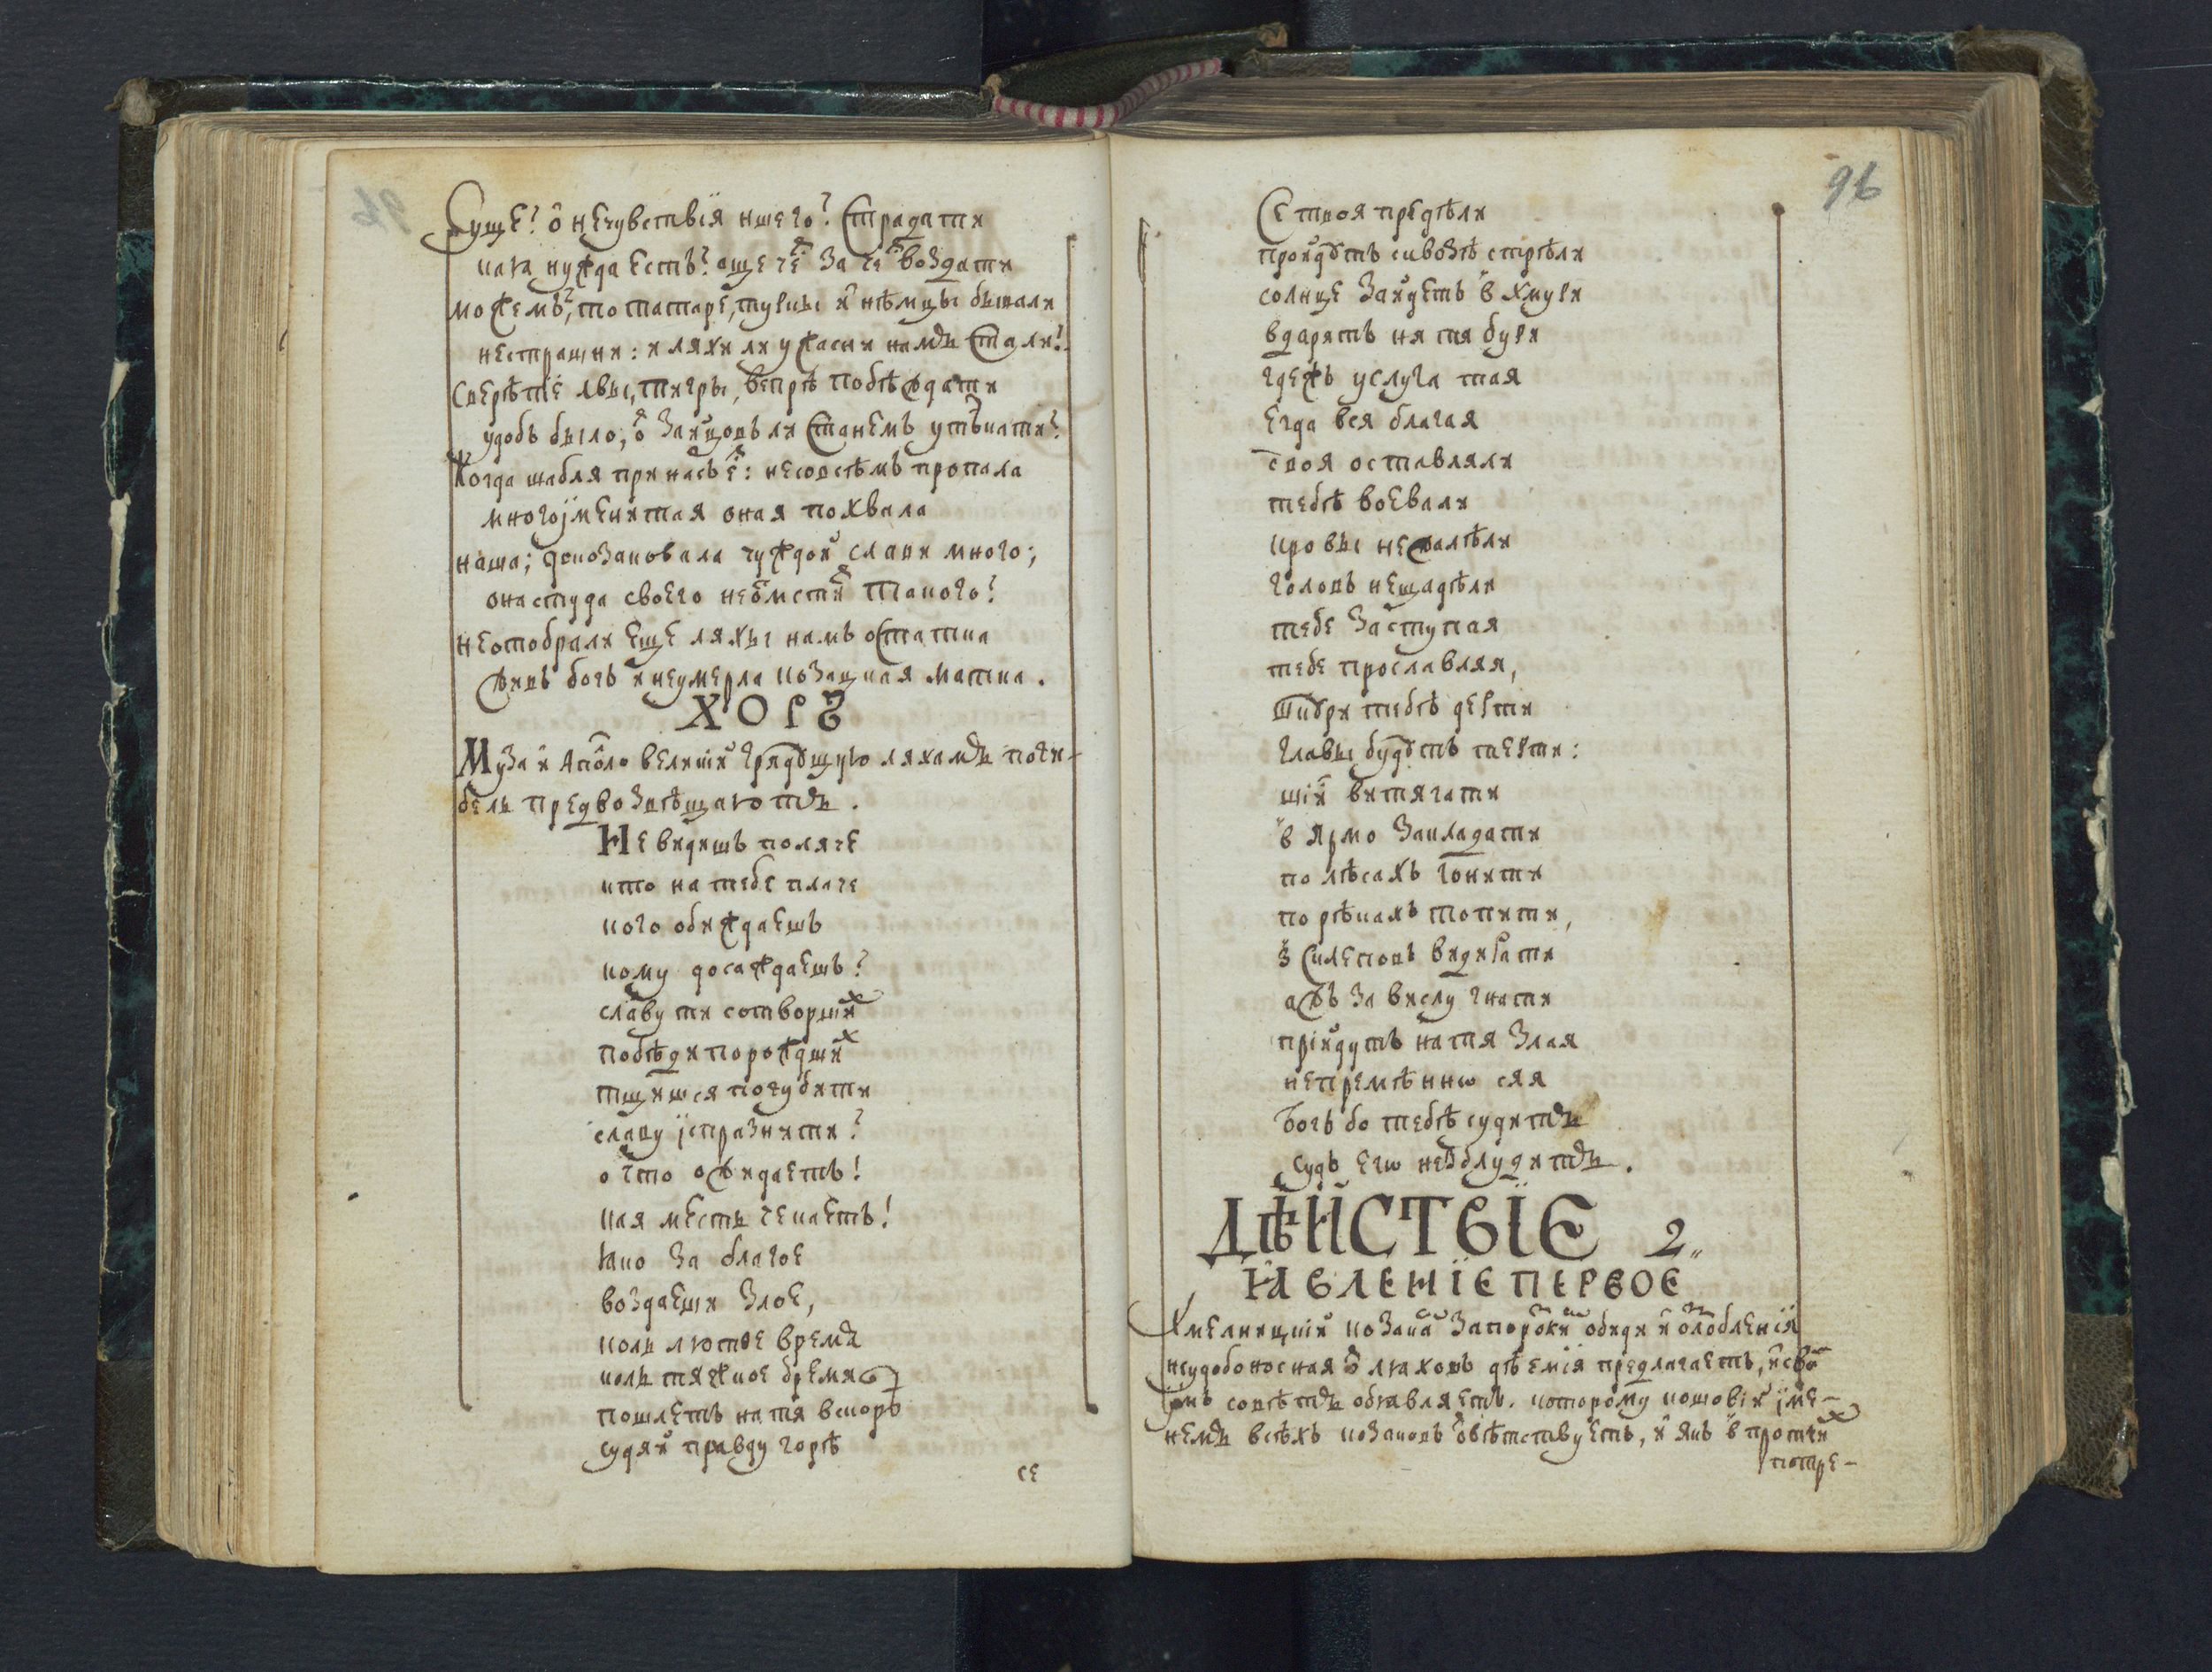 Суще? о нечувствїя ншего? Страдати
кая нужда есть? аще че за че воздати
можемъ, то татаре, турки и нѣмцы бывали
нестрашни: и ляхи ли ужасни намъ стали?
Сверѣпіе лвы, тигры, вепрѣ побѣждати
удобъ было, ѿ зайцовъ ли станемъ утѣкати?
Когда шабля при насъ е: несовсѣмъ пропала
многоименитая оная похвала
наша; доказовала чуждой слави много;
она студа своего неѿмстит такого?
неотобрали еще ляхы намъ остатка
живъ богъ и неумерла козацкая матка.
ХОРЪ
Муза и Аполо великій грядущую ляхамъ поги-
бель предвозвѣщаютъ.
Не видишъ поляче
кто на тебе плаче
кого обиждаешъ
кому досаждаешъ?
славу ти сотворших
побѣди порождших
тщишся погубити
славу испразнити?
о что ожидаетъ!
кая месть чекаетъ!
Яко за благое
воздаеши злое,
коль лютое время
коль тяжкое бремя
пошлетъ на тя вскорѣ
судяй правду горѣ
се
96
Се твоя предѣли
пройдутъ сквозѣ стрѣли
солнце зайдетъ в хмури
вдарятъ на тя бури
гдежъ услуга тая
егда вся благая
своя оставляли
тебѣ воевали
кровы нежалѣли
головъ нещадѣли
тебе заступая
тебе прославляя,
шкури тебѣ дерти
главы будутъ терти:
шіи витягати
в ярмо закладати
по лѣсахъ гонити
по рѣкахъ топити,
з склеповъ видирати
ажъ за вислу гнати
прійдутъ на тя злая
непремѣнно сяя
Богъ бо тебѣ судитъ
судъ его незблудитъ.
ДѢЙСТВІЕ 2
ЯВЛЕНІЕ ПЕРВОЕ
Хмелницкій козакѡм Запорозким обиди и озлобленїя
неудобоносная ѿ ляховъ дѣемія предлагаетъ, и сво
им совѣтъ обявляетъ. которому кошовій име-
немъ всѣхъ козаковъ ѿвѣтствуетъ, и якъ в протчих
потре-